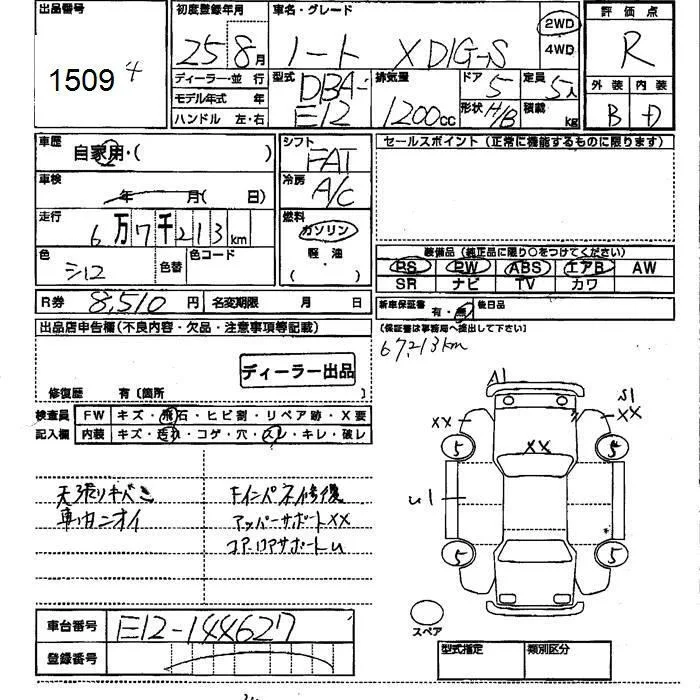 出品番号 初度登録年月 車名・グレード 評価点
1509 4 25 8月 ノート X DIG-S 2WD R
4WD
ディーラー・並行 型式 排気量 ドア 定員 外装 内装
モデル年式 年 DBA- 5 5人
ハンドル 左・右 E12 1200cc 形状 H/B 積載 kg B D
車歴 自家用・( ) シフト FAT セールスポイント (正常に機能するものに限ります)
車検 年 月( 日) 冷房 A/C
走行 6万7千213km 燃料 ガソリン
色 シロ 色替 色コード 軽油 装備品 (純正品に限り○をつけてください)
( ・ ) PS PW ABS エアB AW
SR ナビ TV カワ
R券 8,510円 名変期限 月 日 新車保証書 有・無 後日品
出品店申告欄(不良内容・欠品・注意事項等記載) (保証書は事務局へ提出して下さい)
67,213km
ディーラー出品
修復歴 有〔箇所 〕
検査員 FW キズ・飛石・ヒビ割・リペア跡・X要
記入欄 内装 キズ・汚れ・コゲ・穴・スレ・キレ・破レ
A1
XX S1
XX
XX
5 5
U1
5 5
天張りキバミ Fインパネ修復
車内ニオイ アッパーサポートXX
コア・ロアサポートU
スペア
車台番号 E12-144627
登録番号 型式指定 類別区分